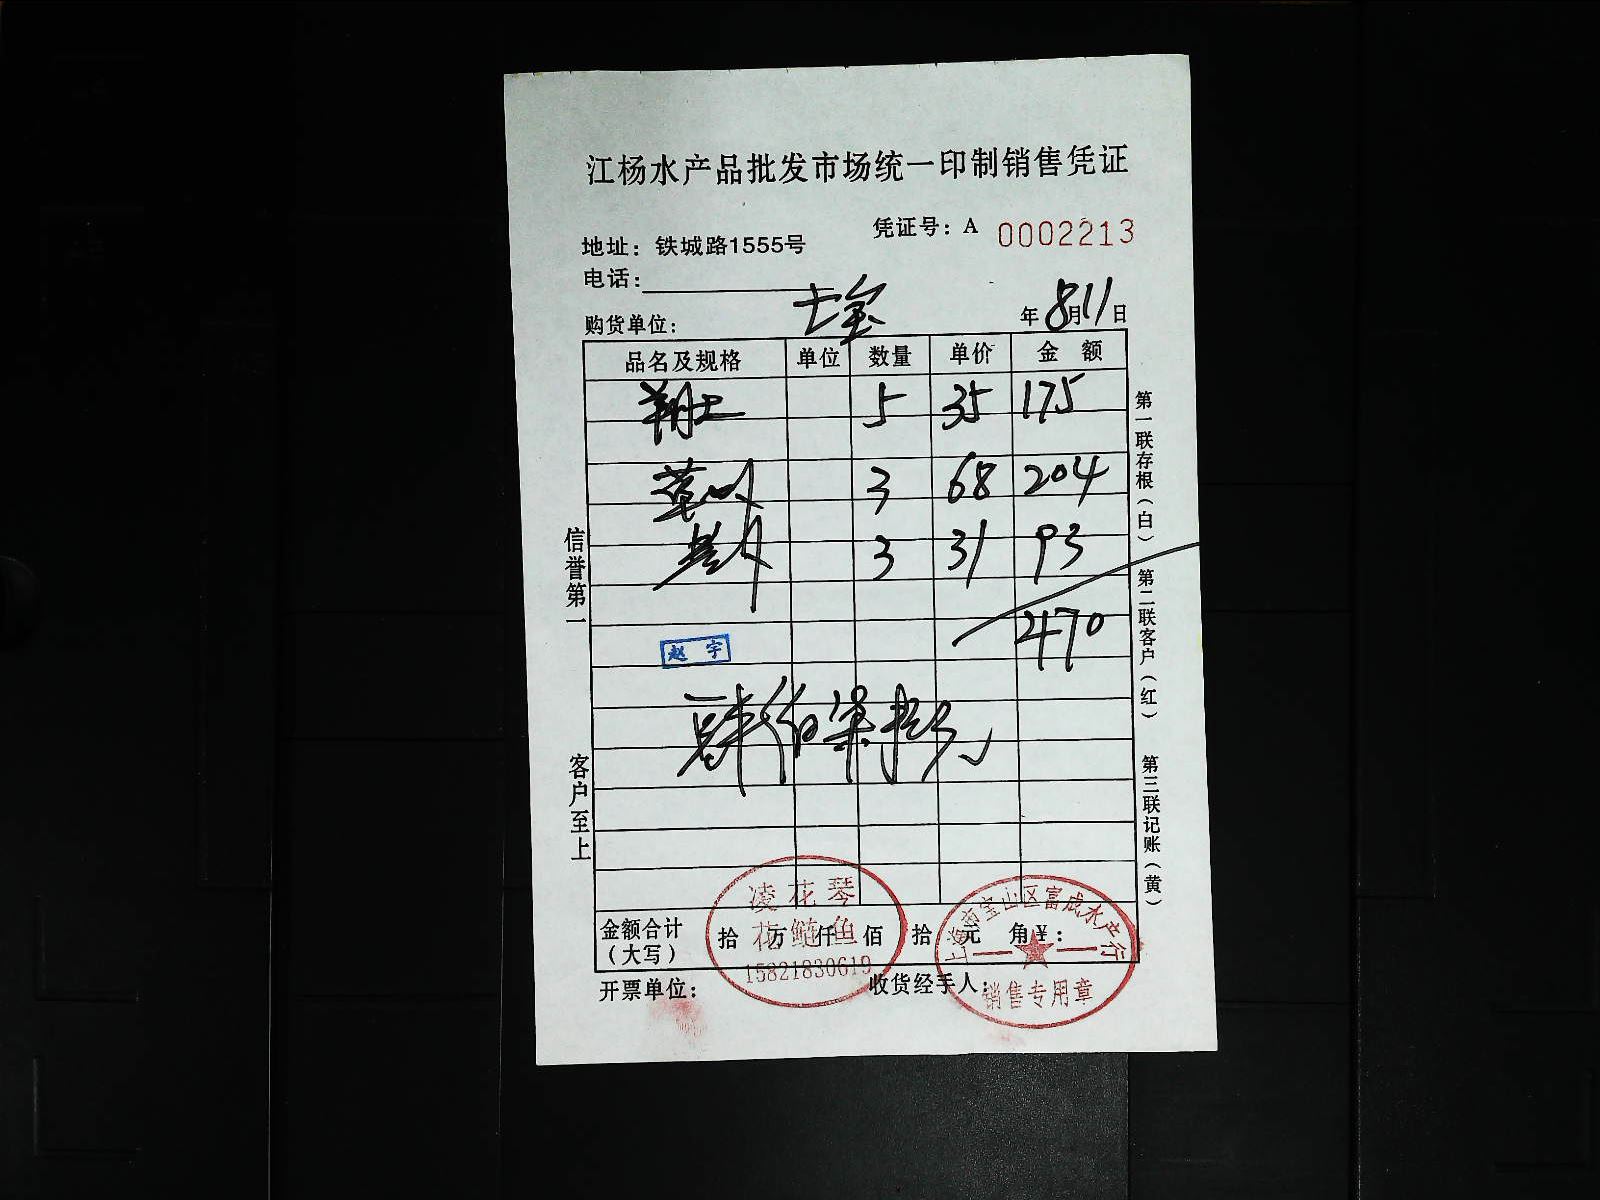 江杨水产品批发市场统一印制销售凭证
凭证号：A 0002213
地址：铁城路1555号
电话：
购货单位： 七宝 年8月11日
品名及规格 单位 数量 单价 金额
5 35 175
3 68 204
3 31 93
470
赵宇
肆佰柒拾元
金额合计（大写） 拾 万 仟 佰 拾 元 角 ¥：
开票单位： 收货经手人：
信誉第一
客户至上
第一联存根（白）
第二联客户（红）
第三联记账（黄）
凌花琴
花鲢鱼
15821830619
上海市宝山区富成水产行
销售专用章